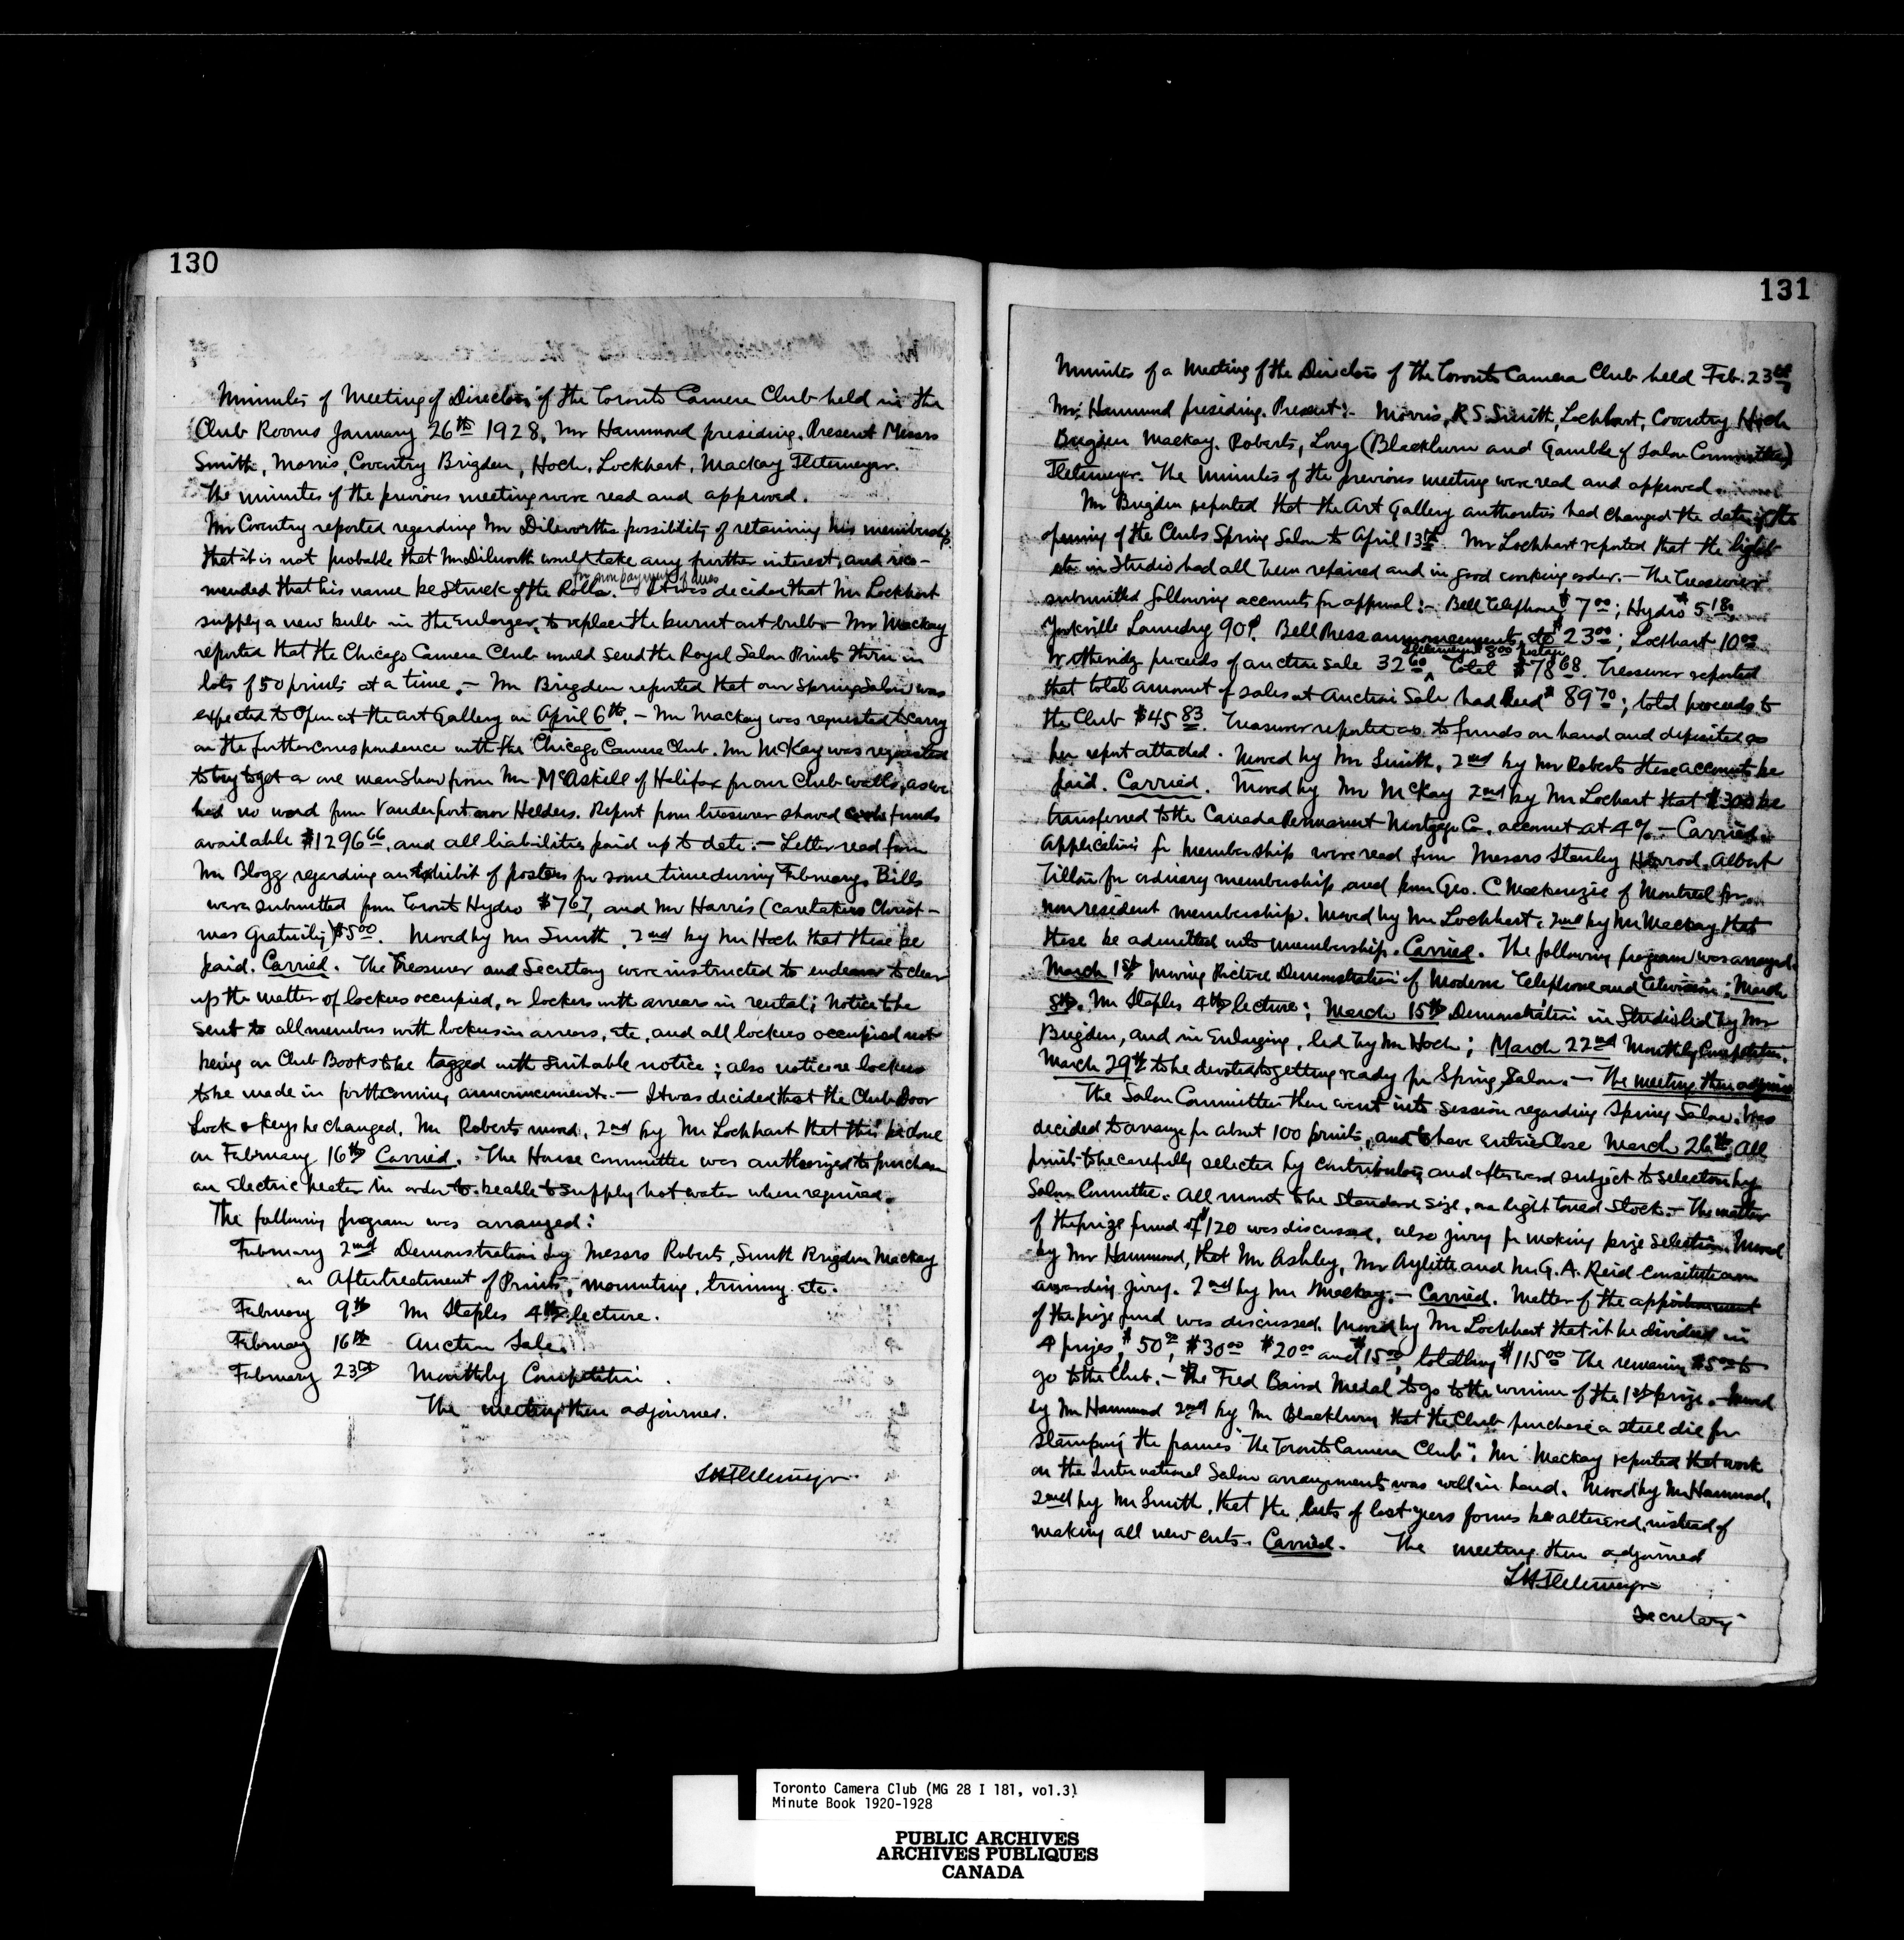 130
Minutes of Meeting of Directors of the Toronto Camera Club held in the
Club Rooms January 26th 1928, Mr Hammond presiding. Present Messrs
Smith, Morris, Coventry Brigden, Hoch, Lockhart, Mackay Fletemeyer.
The minutes of the previous meeting were read and approved.
Mr Coventry reported regarding Mr Dilworths possibility of retaining his membership,
that it is not probable that Mr Dilworth would take any further interest, and recom-
mended that his name be struck of the Rolls. for non payment of dues - It was decided that Mr Lockhart
supply a new bulb in the Enlarger, to replace the burnt out bulb - Mr Mackay
reported that the Chicago Camera Club would send the Royal Salon Prints thru in
lots of 50 prints at a time. - Mr Brigden reported that our Spring Salon was
expected to Open at the Art Gallery on April 6th. - Mr Mackay was requested to carry
on the further correspondence with the Chicago Camera Club. Mr McKay was requested
to try to get a one man show from Mr McAskill of Halifax for our Club walls, as we
had no word from Vanderpant nor Helders. Report from treasurer showed funds
available $1296 66, and all liabilities paid up to date. - Letter read from
Mr Blogg regarding an Exhibit of posters for some time during February. Bills
were submitted from Toronto Hydro $7 67, and Mr Harris (caretakers Christ-
mas Gratuity) $5 00. Moved by Mr Smith, 2nd by Mr Hoch that these be
paid. Carried. The Treasurer and Secretary were instructed to endeavor to clear
up the matter of lockers occupied, or lockers with arrears in rental; Notice to be
sent to all members with lockers in arrears, etc, and all lockers occupied not
being on Club Books to be tagged with suitable notice; also notice re lockers
to be made in forthcoming announcement. - It was decided that the Club Door
Lock & keys be changed. Mr Roberts moved, 2nd by Mr Lockhart that this be done
on February 16th Carried. The House committee was authorized to purchase
an Electric heater in order to be able to supply hot water when required.
The following program was arranged:
February 2nd Demonstration by Messrs Roberts, Smith Brigden Mackay
on Aftertreatment of Prints, mounting, trimming etc.
February 9th Mr Staples 4th lecture.
February 16th Auction Sale.
February 23rd Monthly Competition.
The meeting then adjourned.
131
Minutes of a Meeting of the Directors of the Toronto Camera Club held Feb. 23rd,
Mr. Hammond presiding. Present:- Morris, R S Smith, Lockhart, Coventry Hoch
Brigden Mackay. Roberts, Long (Blackburn and Gamble of Salon Committee)
Fletemeyer. The minutes of the previous meeting were read and approved.
Mr Brigden reported that the Art Gallery authorities had changed the date of the
opening of the Clubs Spring Salon to April 13th. Mr Lockhart reported that the lights
etc in Studio had all been repaired and in good working order. - The Treasurer
submitted following accounts for approval:- Bell Telephone $7 00; Hydro $5 18,
Yorkville Laundry 90¢. Bell Press announcements, etc $23 00; Lockhart 10 00
proceeds of auction sale 32 60, Fletemeyer 8 00 postage Total $78 68. Treasurer reported
that total amount of sales at Auction Sale had $89 70; total proceeds to
the Club $45 83. Treasurer reported as to funds on hand and deposited as
per report attached. Moved by Mr Smith, 2nd by Mr Roberts these accounts be
paid. Carried. Moved by Mr McKay 2nd by Mr Lockhart that $300 be
transferred to the Canada Permanent Mortgage Co. account at 4% - Carried.
Applications for membership were read from Messrs Stanley Harrod, Albert
for ordinary membership and from Geo. C Mackenzie of Montreal for
non resident membership. Moved by Mr Lockhart, 2nd by Mr Mackay that
these be admitted into membership. Carried. The following program was arranged.
March 1st Moving Picture Demonstration of Modern Telephone and Television; March
8th. Mr Staples 4th lecture; March 15th Demonstration in Studio led by Mr
Brigden, and in Enlarging, led by Mr Hoch; March 22nd Monthly Competition.
March 29th to be devoted to getting ready for Spring Salon. - The meeting then adjourned
The Salon Committee then went into session regarding Spring Salon. Was
decided to arrange for about 100 prints, and to have entries close March 26th. All
prints to be carefully selected by contributors, and afterward subject to selection by
Salon Committee. All mounts to be standard size, on light toned stock. - The matter
of the prize fund of $120 was discussed, also jury for making prize selection. Moved
by Mr Hammond, that Mr Ashley, Mr Aylitt and Mr G. A. Reid constitute our
awarding jury. 2nd by Mr Mackay. - Carried. Matter of the apportionment
of the prize fund was discussed. Moved by Mr Lockhart that it be divided in
4 prizes, $50 00, $30 00 $20 00 and $15 00, totalling $115 00 The remaining $5 00 to
go to the Club. - The Fred Baird Medal to go to the winner of the 1st prize. - Moved
by Mr Hammond 2nd by Mr Blackburn that the Club purchase a steel die for
stamping the frames "The Toronto Camera Club". Mr Mackay reported that work
on the International Salon arrangements was well in hand. Moved by Mr Hammond,
2nd by Mr Smith, that the cuts of last years forms be altered, instead of
making all new cuts. Carried. The meeting then adjourned
Secretary
Toronto Camera Club (MG 28 I 181, vol.3)
Minute Book 1920-1928
PUBLIC ARCHIVES
ARCHIVES PUBLIQUES
CANADA